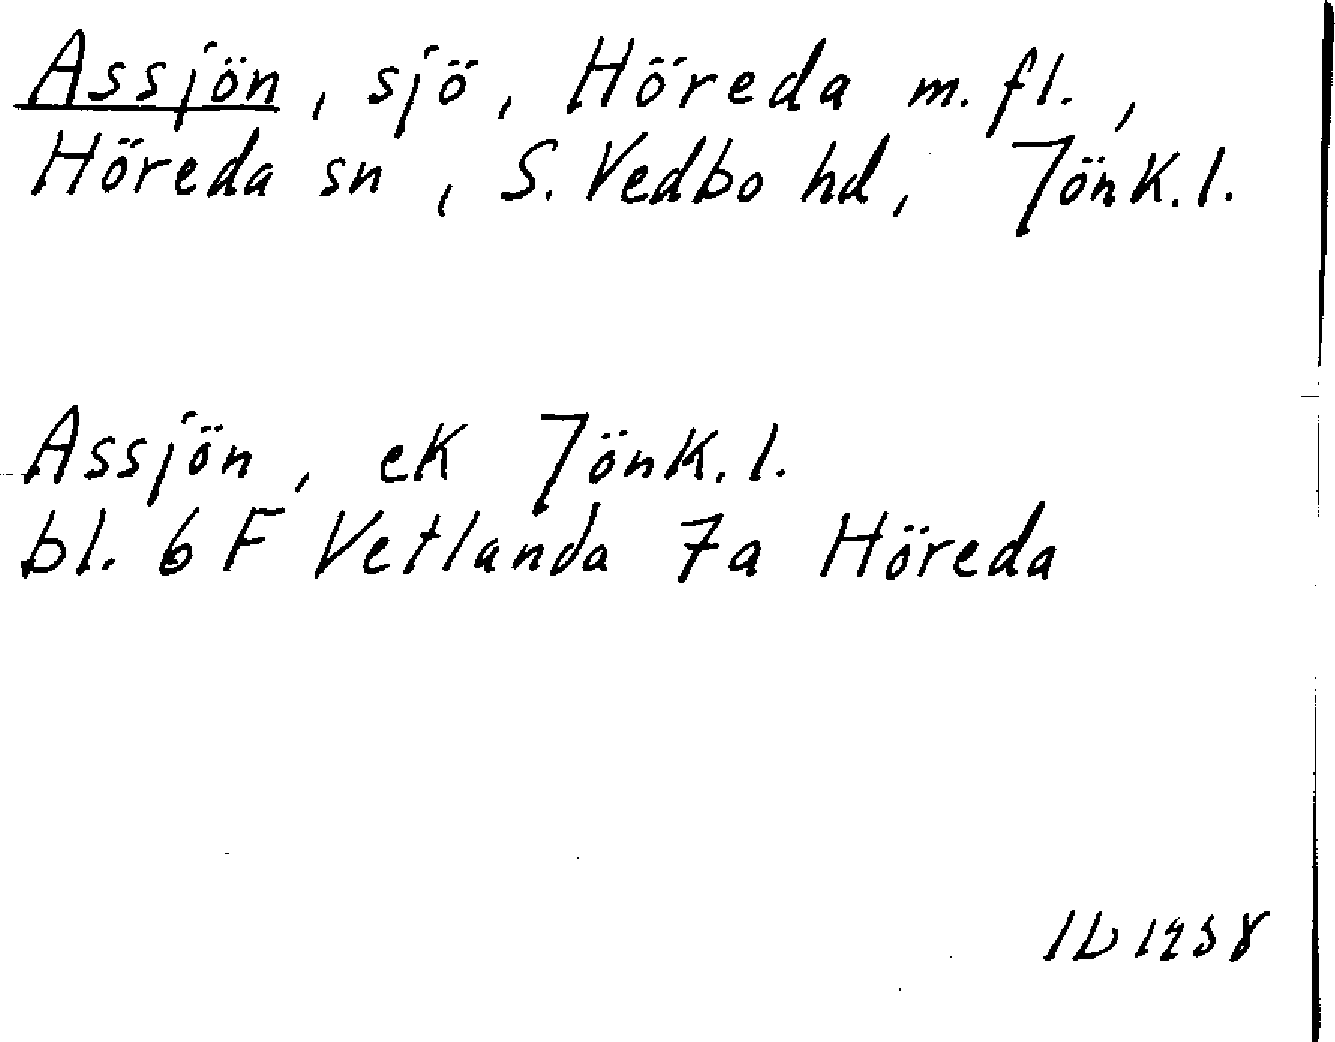 Assjön, sjö, Höreda m.fl.,
Höreda sn, S. Vedbo hd, Jönk.l.
Assjön, ek Jönk.l.
bl. 6 F Vetlanda 7a Höreda